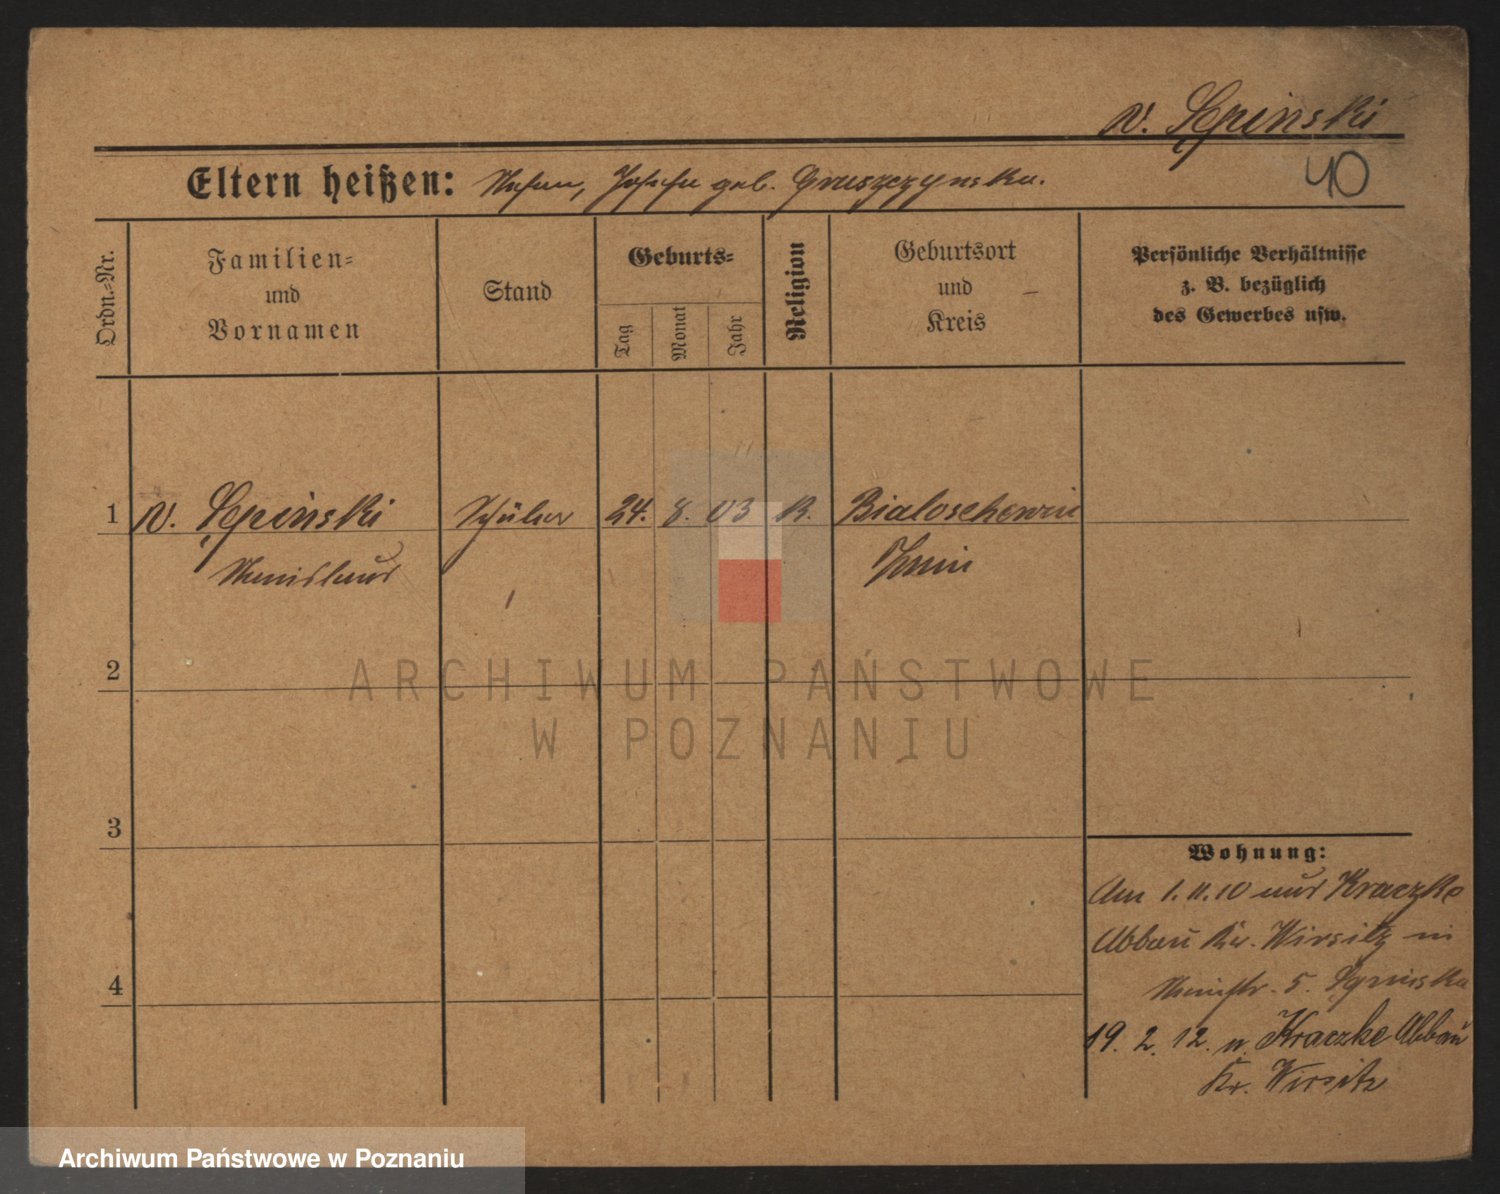 v. Lpinski
40
Eltern heißen: Stefan, Josefa geb. Gruszczynska.
Ordn.-Nr.
Familien-
und
Vornamen
Stand
Geburts-
Tag
Monat
Jahr
Religion
Geburtsort
und
Kreis
Persönliche Verhältnisse
z. B. bezüglich
des Gewerbes usw.
1 v. Lpinski Schüler 24. 8. 03 K. Bialoschewin
Stanislaus Znin
2
3
4
Wohnung:
Am 1.11.10 aus Kraczke
Abbau Kr. Wirsitz in
5. Lpinska
19. 2. 12. n. Kraczke Abbau
Kr. Wirsitz
ARCHIWUM PAŃSTWOWE
W POZNANIU
Archiwum Państwowe w Poznaniu